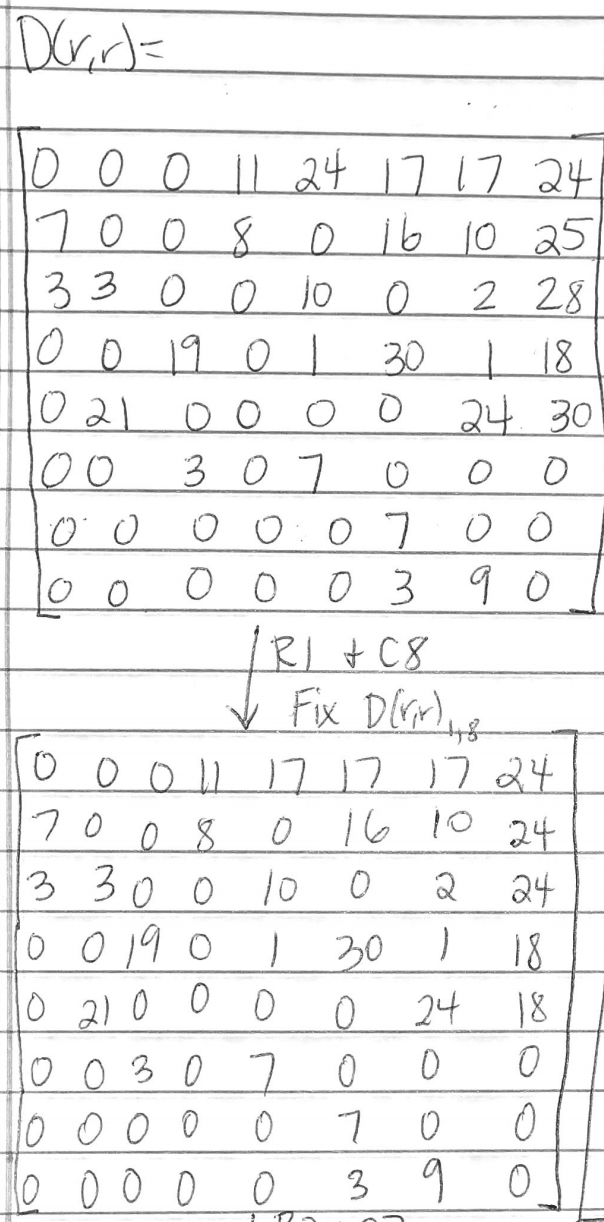 D(r,r)=
0 0 0 11 24 17 17 24
7 0 0 8 0 16 10 25
3 3 0 0 10 0 2 28
0 0 19 0 1 30 1 18
0 21 0 0 0 0 24 30
0 0 3 0 7 0 0 0
0 0 0 0 0 7 0 0
0 0 0 0 0 3 9 0
R1 + C8
Fix D(r,r)1,8
0 0 0 11 17 17 17 24
7 0 0 8 0 16 10 24
3 3 0 0 10 0 2 24
0 0 19 0 1 30 1 18
0 21 0 0 0 0 24 18
0 0 3 0 7 0 0 0
0 0 0 0 0 7 0 0
0 0 0 0 0 3 9 0